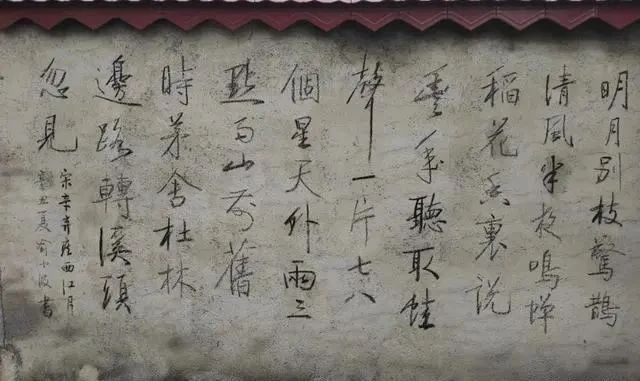 明月别枝驚鵲
清風半夜鳴蟬
稻花香裏説
豐年聽取蛙
聲一片七八
個星天外兩三
點雨山前舊
時茅舍社林
邊路轉溪頭
忽見
宋辛弃疾西江月
辛丑夏俞小波書